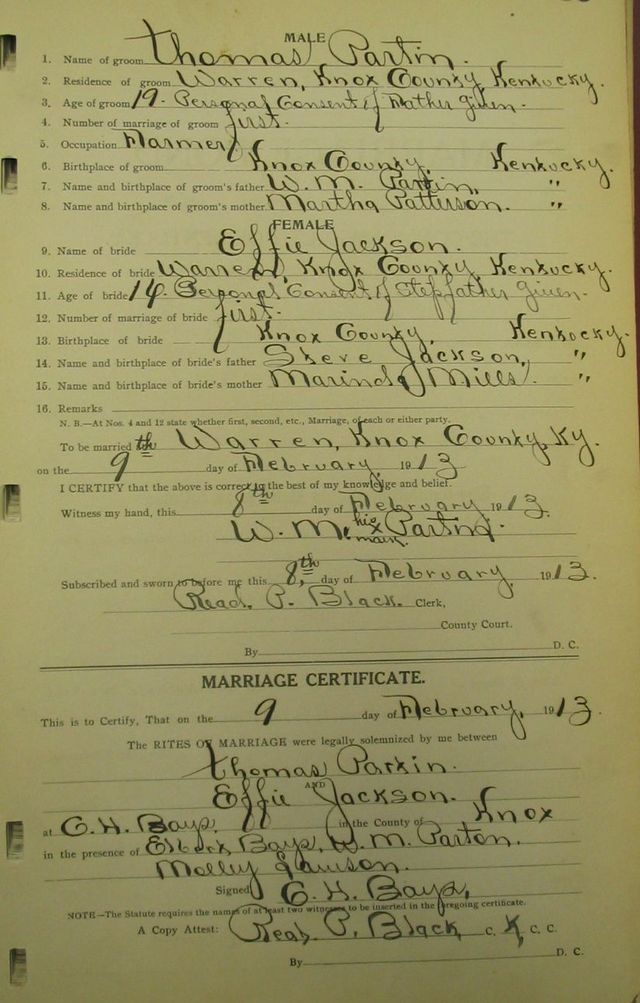 MALE
1. Name of groom Thomas Partin.
2. Residence of groom Warren, Knox County, Kentucky.
3. Age of groom 19. Personal Consent of Father given.
4. Number of marriage of groom first.
5. Occupation Farmer
6. Birthplace of groom Knox County, Kentucky.
7. Name and birthplace of groom's father W. M. Partin, "
8. Name and birthplace of groom's mother Martha Patterson. "
FEMALE
9. Name of bride Effie Jackson.
10. Residence of bride Warren, Knox County, Kentucky.
11. Age of bride 14. Personal Consent of Stepfather given.
12. Number of marriage of bride first.
13. Birthplace of bride Knox County, Kentucky.
14. Name and birthplace of bride's father Steve Jackson, "
15. Name and birthplace of bride's mother Marinda Mills. "
16. Remarks
N. B.—At Nos. 4 and 12 state whether first, second, etc., Marriage, of each or either party.
To be married at Warren, Knox County, Ky.
on the 9th day of February, 1913
I CERTIFY that the above is correct to the best of my knowledge and belief.
Witness my hand, this 8th day of February, 1913.
W. M. his x mark Partin.
Subscribed and sworn to before me this 8th, day of February, 1913.
Read P. Black Clerk,
County Court.
By D. C.
MARRIAGE CERTIFICATE.
This is to Certify, That on the 9 day of February, 1913.
The RITES OF MARRIAGE were legally solemnized by me between
Thomas Partin.
AND
Effie Jackson.
at G. H. Bays, in the County of Knox
in the presence of Bays, W. M. Parton.
Molley Lawson.
Signed G. H. Bays,
NOTE—The Statute requires the names of at least two witnesses to be inserted in the foregoing certificate.
A Copy Attest: Read P. Black, C. K. C. C.
By D. C.